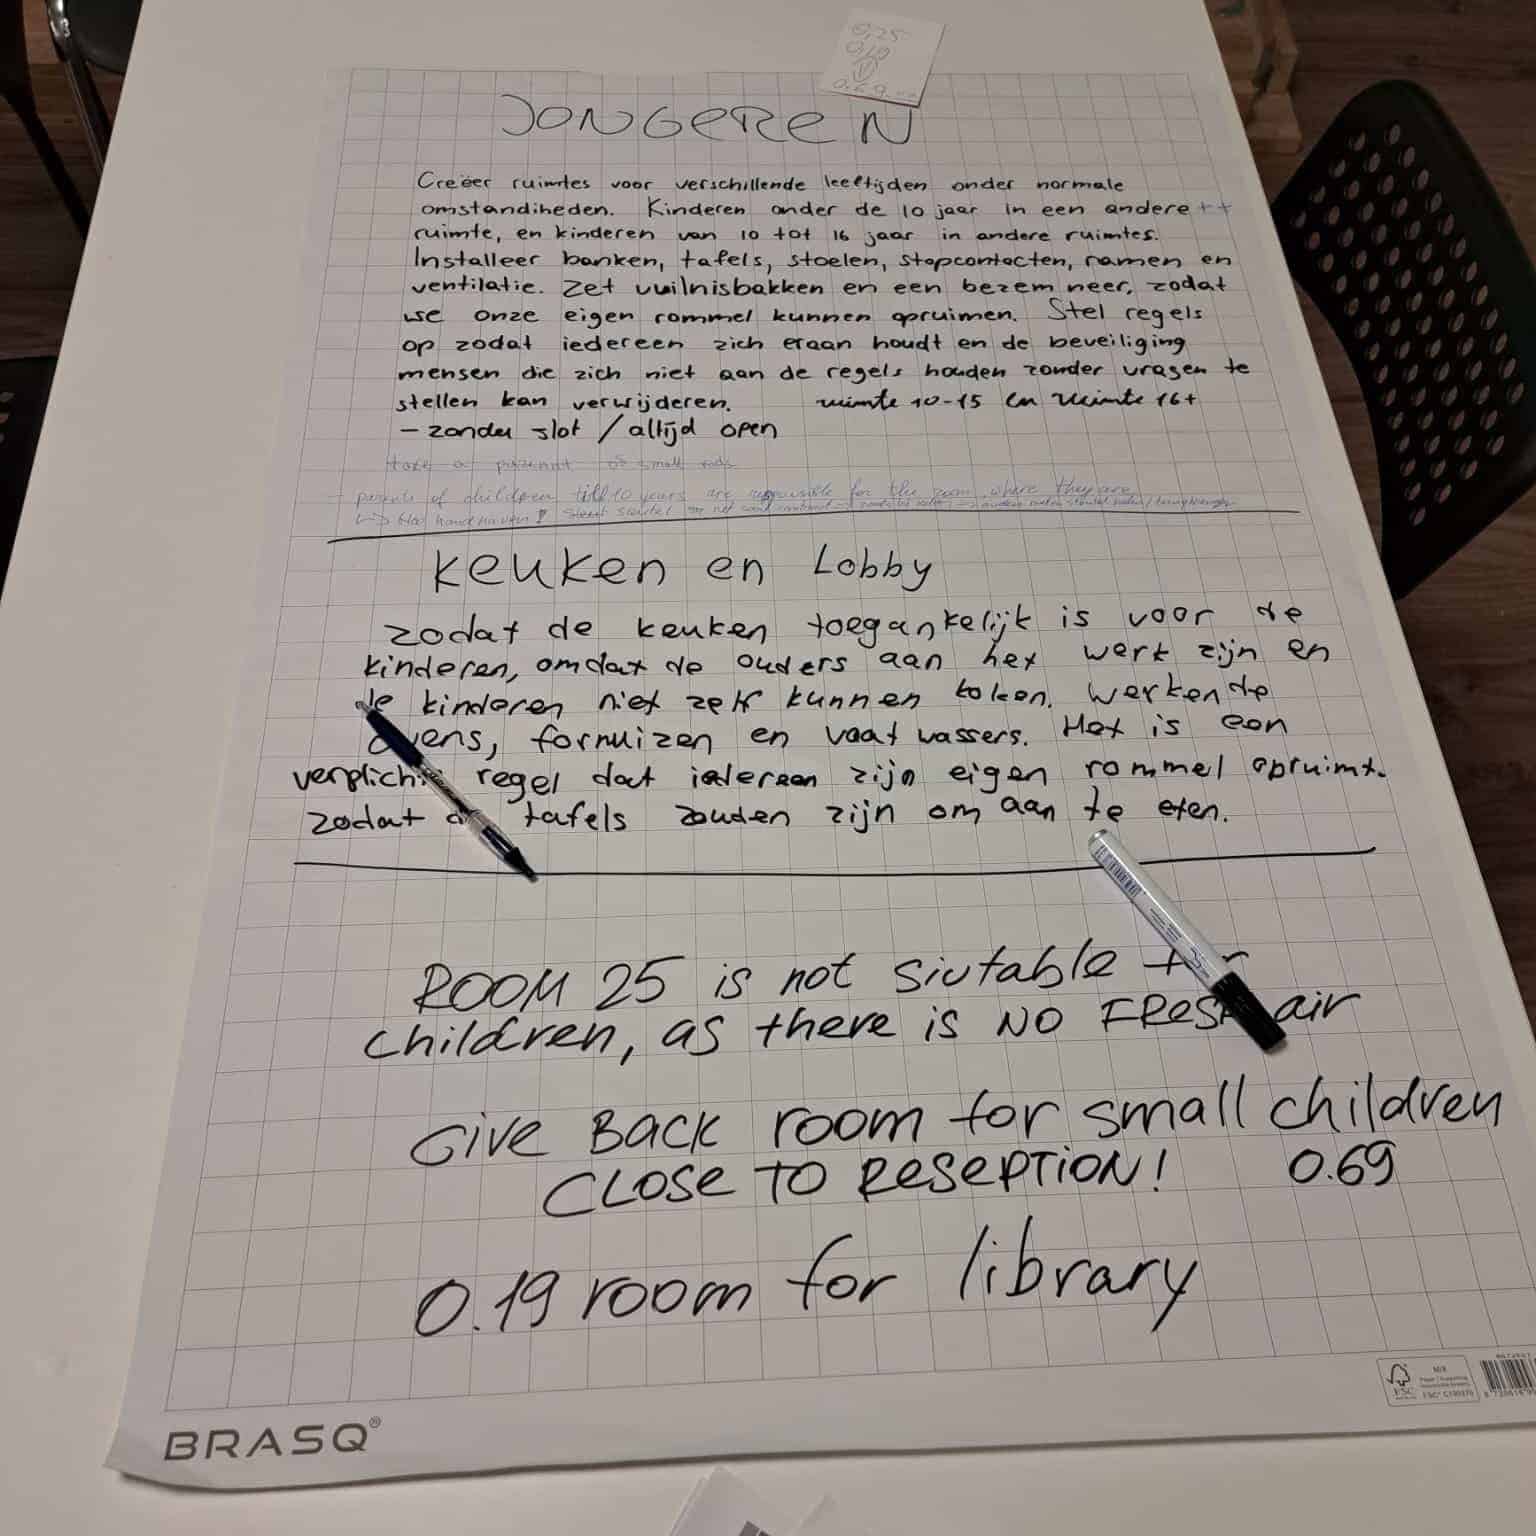 0,25
0,19
JONGEREN
Creëer ruimtes voor verschillende leeftijden onder normale
omstandiheden. Kinderen onder de 10 jaar in een andere ++
ruimte, en kinderen van 10 tot 16 jaar in andere ruimtes.
Installeer banken, tafels, stoelen, stopcontacten, ramen en
ventilatie. Zet vuilnisbakken en een bezem neer, zodat
we onze eigen rommel kunnen opruimen. Stel regels
op zodat iedereen zich eraan houdt en de beveiliging
mensen die zich niet aan de regels houden zonder vragen te
stellen kan verwijderen. ruimte 10-15 en ruimte 16+
- zonder slot / altijd open
take a of small kids
- parents of children till 10 years are responsible for the room where they are
Keuken en Lobby
zodat de keuken toegankelijk is voor de
kinderen, omdat de ouders aan het werk zijn en
de kinderen niet zelf kunnen koken. Werkende
ovens, fornuizen en vaatwassers. Het is een
verplicht regel dat iedereen zijn eigen rommel opruimt.
zodat tafels zouden zijn om aan te eten.
ROOM 25 is not siutable for
children, as there is NO FRESH air
GIVE BACK room for small children
CLOSE TO RESEPTION! 0.69
0.19 room for library
BRASQ®
MIX
FSC
FSC® C190370